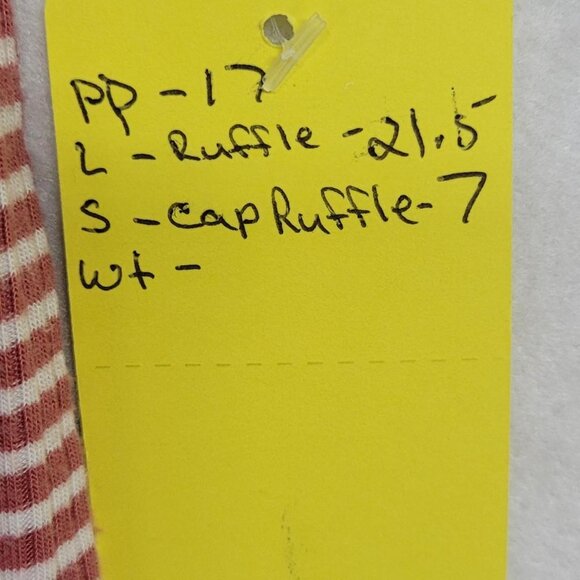 PP - 17
L - Ruffle - 21.5
S - cap Ruffle - 7
wt -